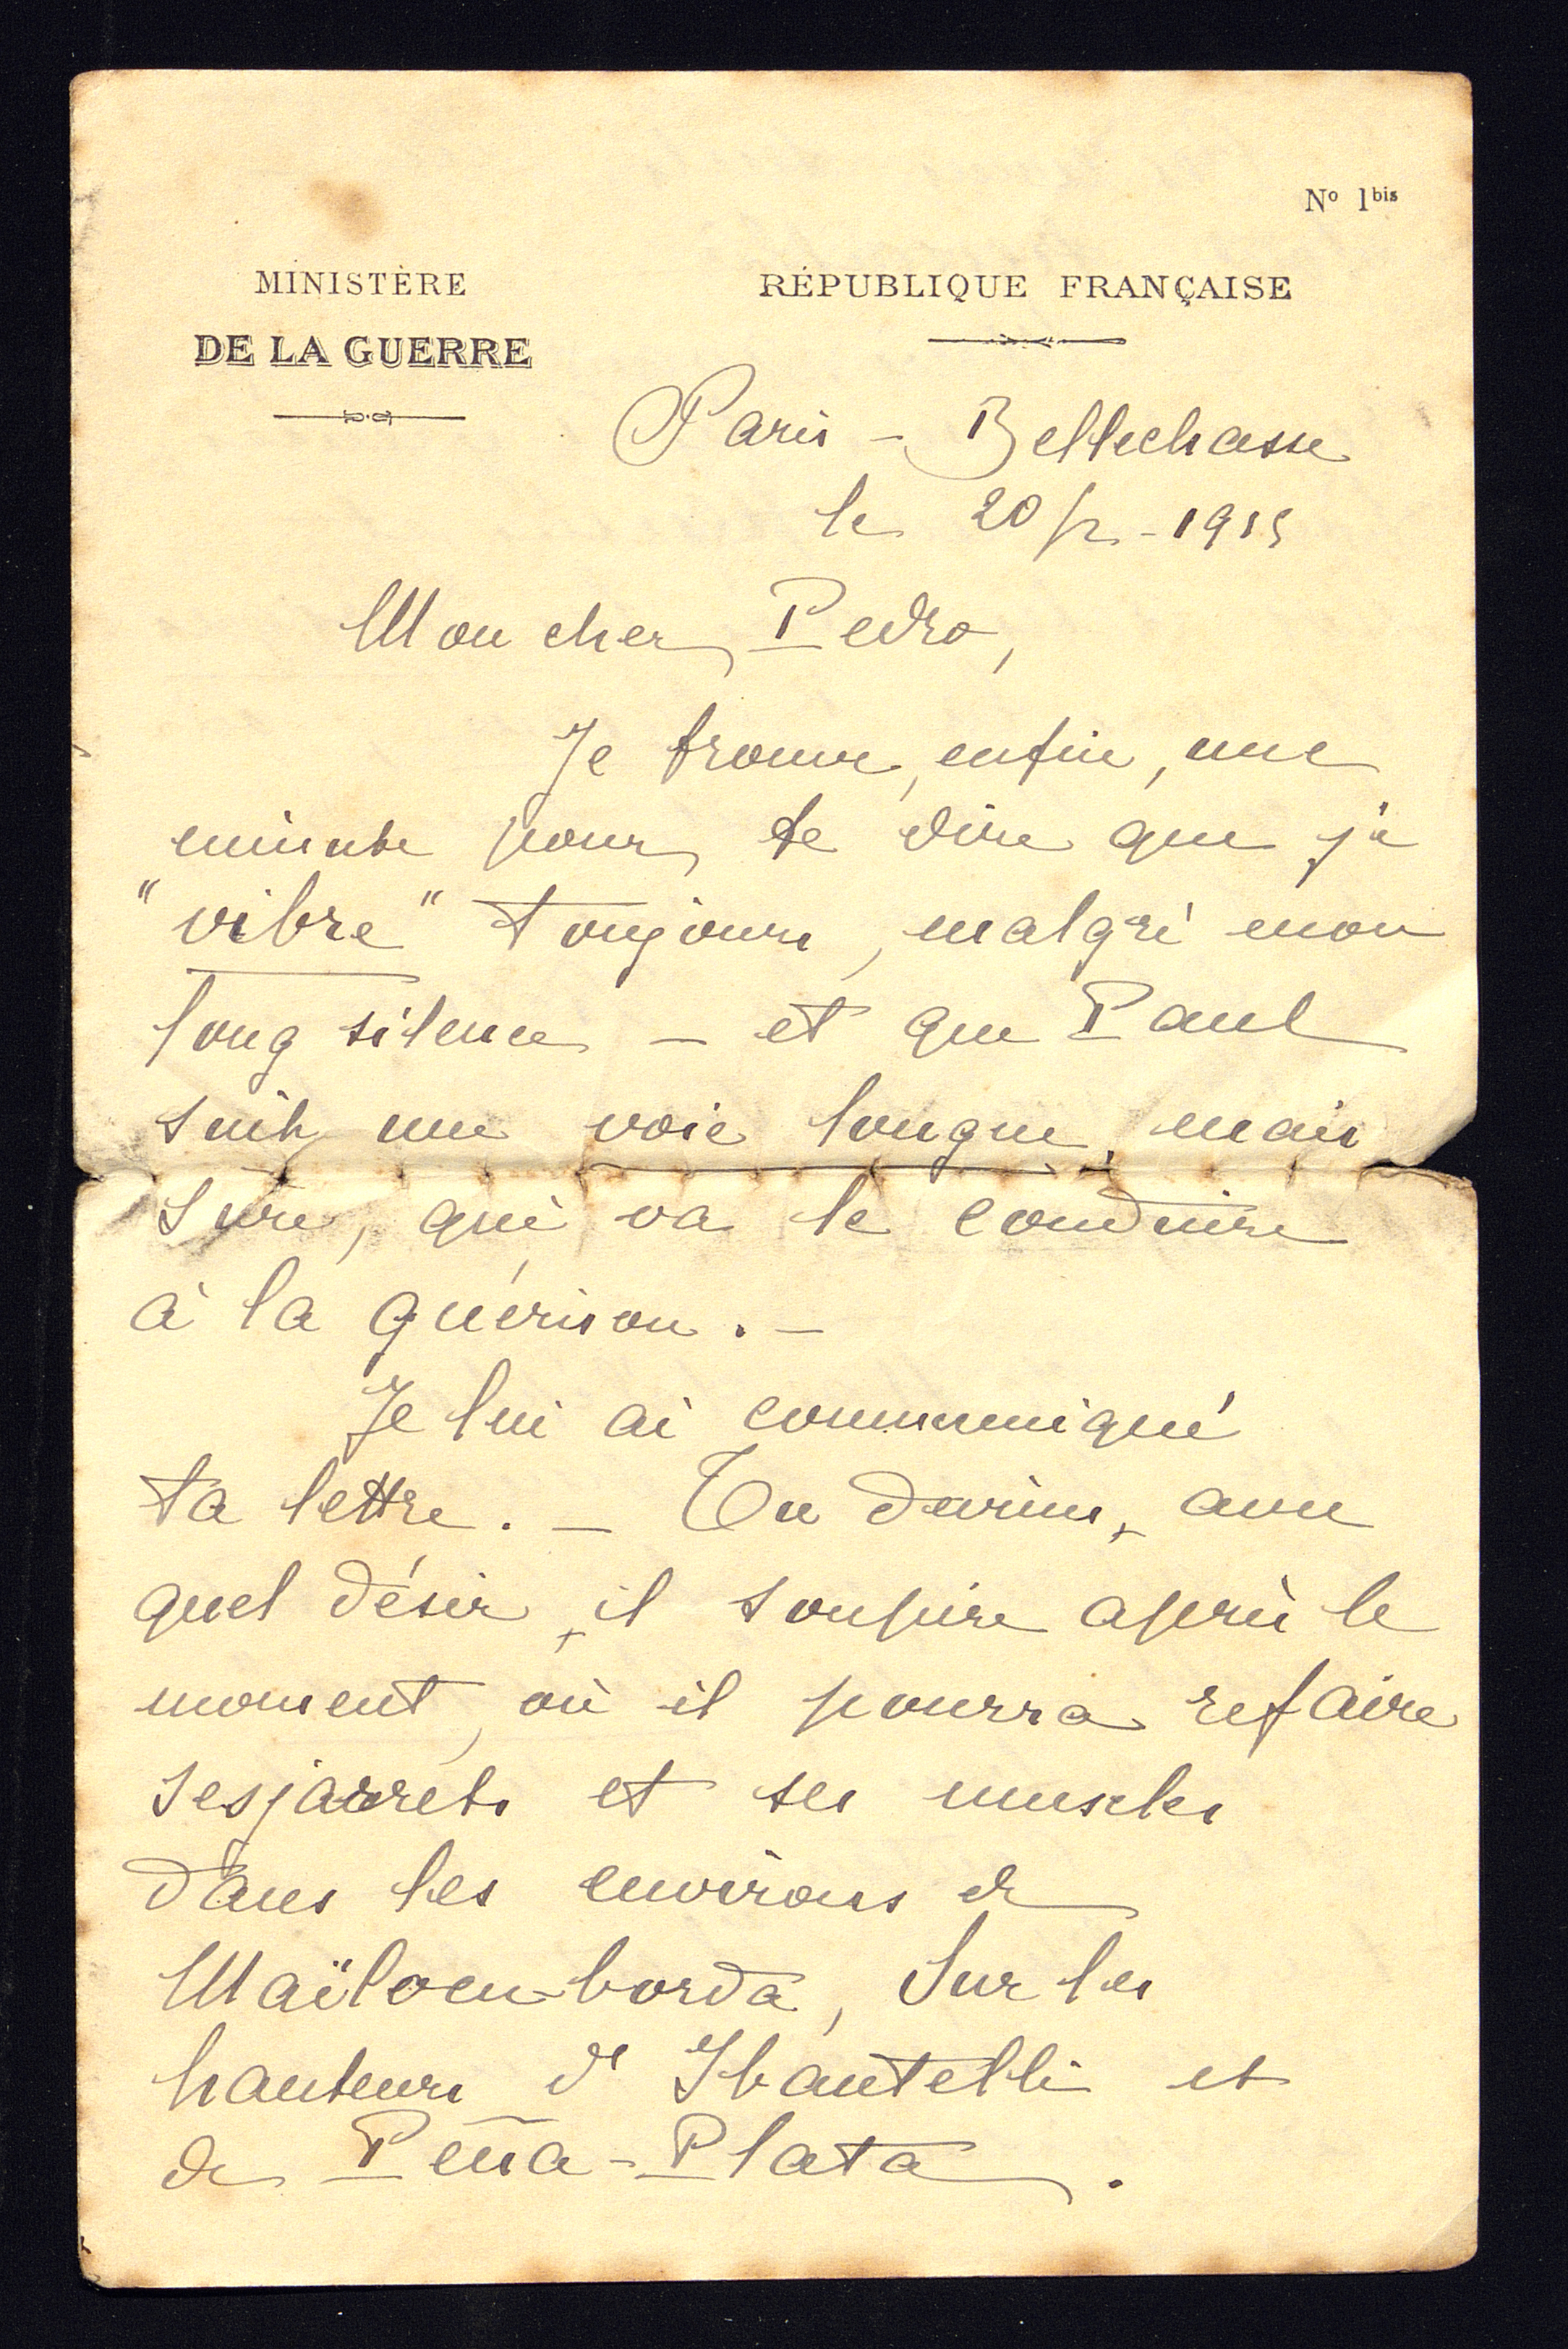 Nº 1bis
MINISTÈRE
DE LA GUERRE
RÉPUBLIQUE FRANÇAISE
Paris - Bellechasse
le 20/2-1915
Mon cher Pedro,
Je trouve, enfin, une
minute pour te dire que je
"vibre" toujours, malgré mon
long silence - et que Paul
suit une voie longue, mais
sure, qui va le conduire
à la guérison. -
Je lui ai communiqué
ta lettre. - Tu devines, avec
quel désir, il soupire après le
moment, où il pourra refaire
ses jarrets et ses muscles
dans les environs de
Maïloen-borda, sur les
hauteurs d'Ibantelli et
de Peña-Plata.